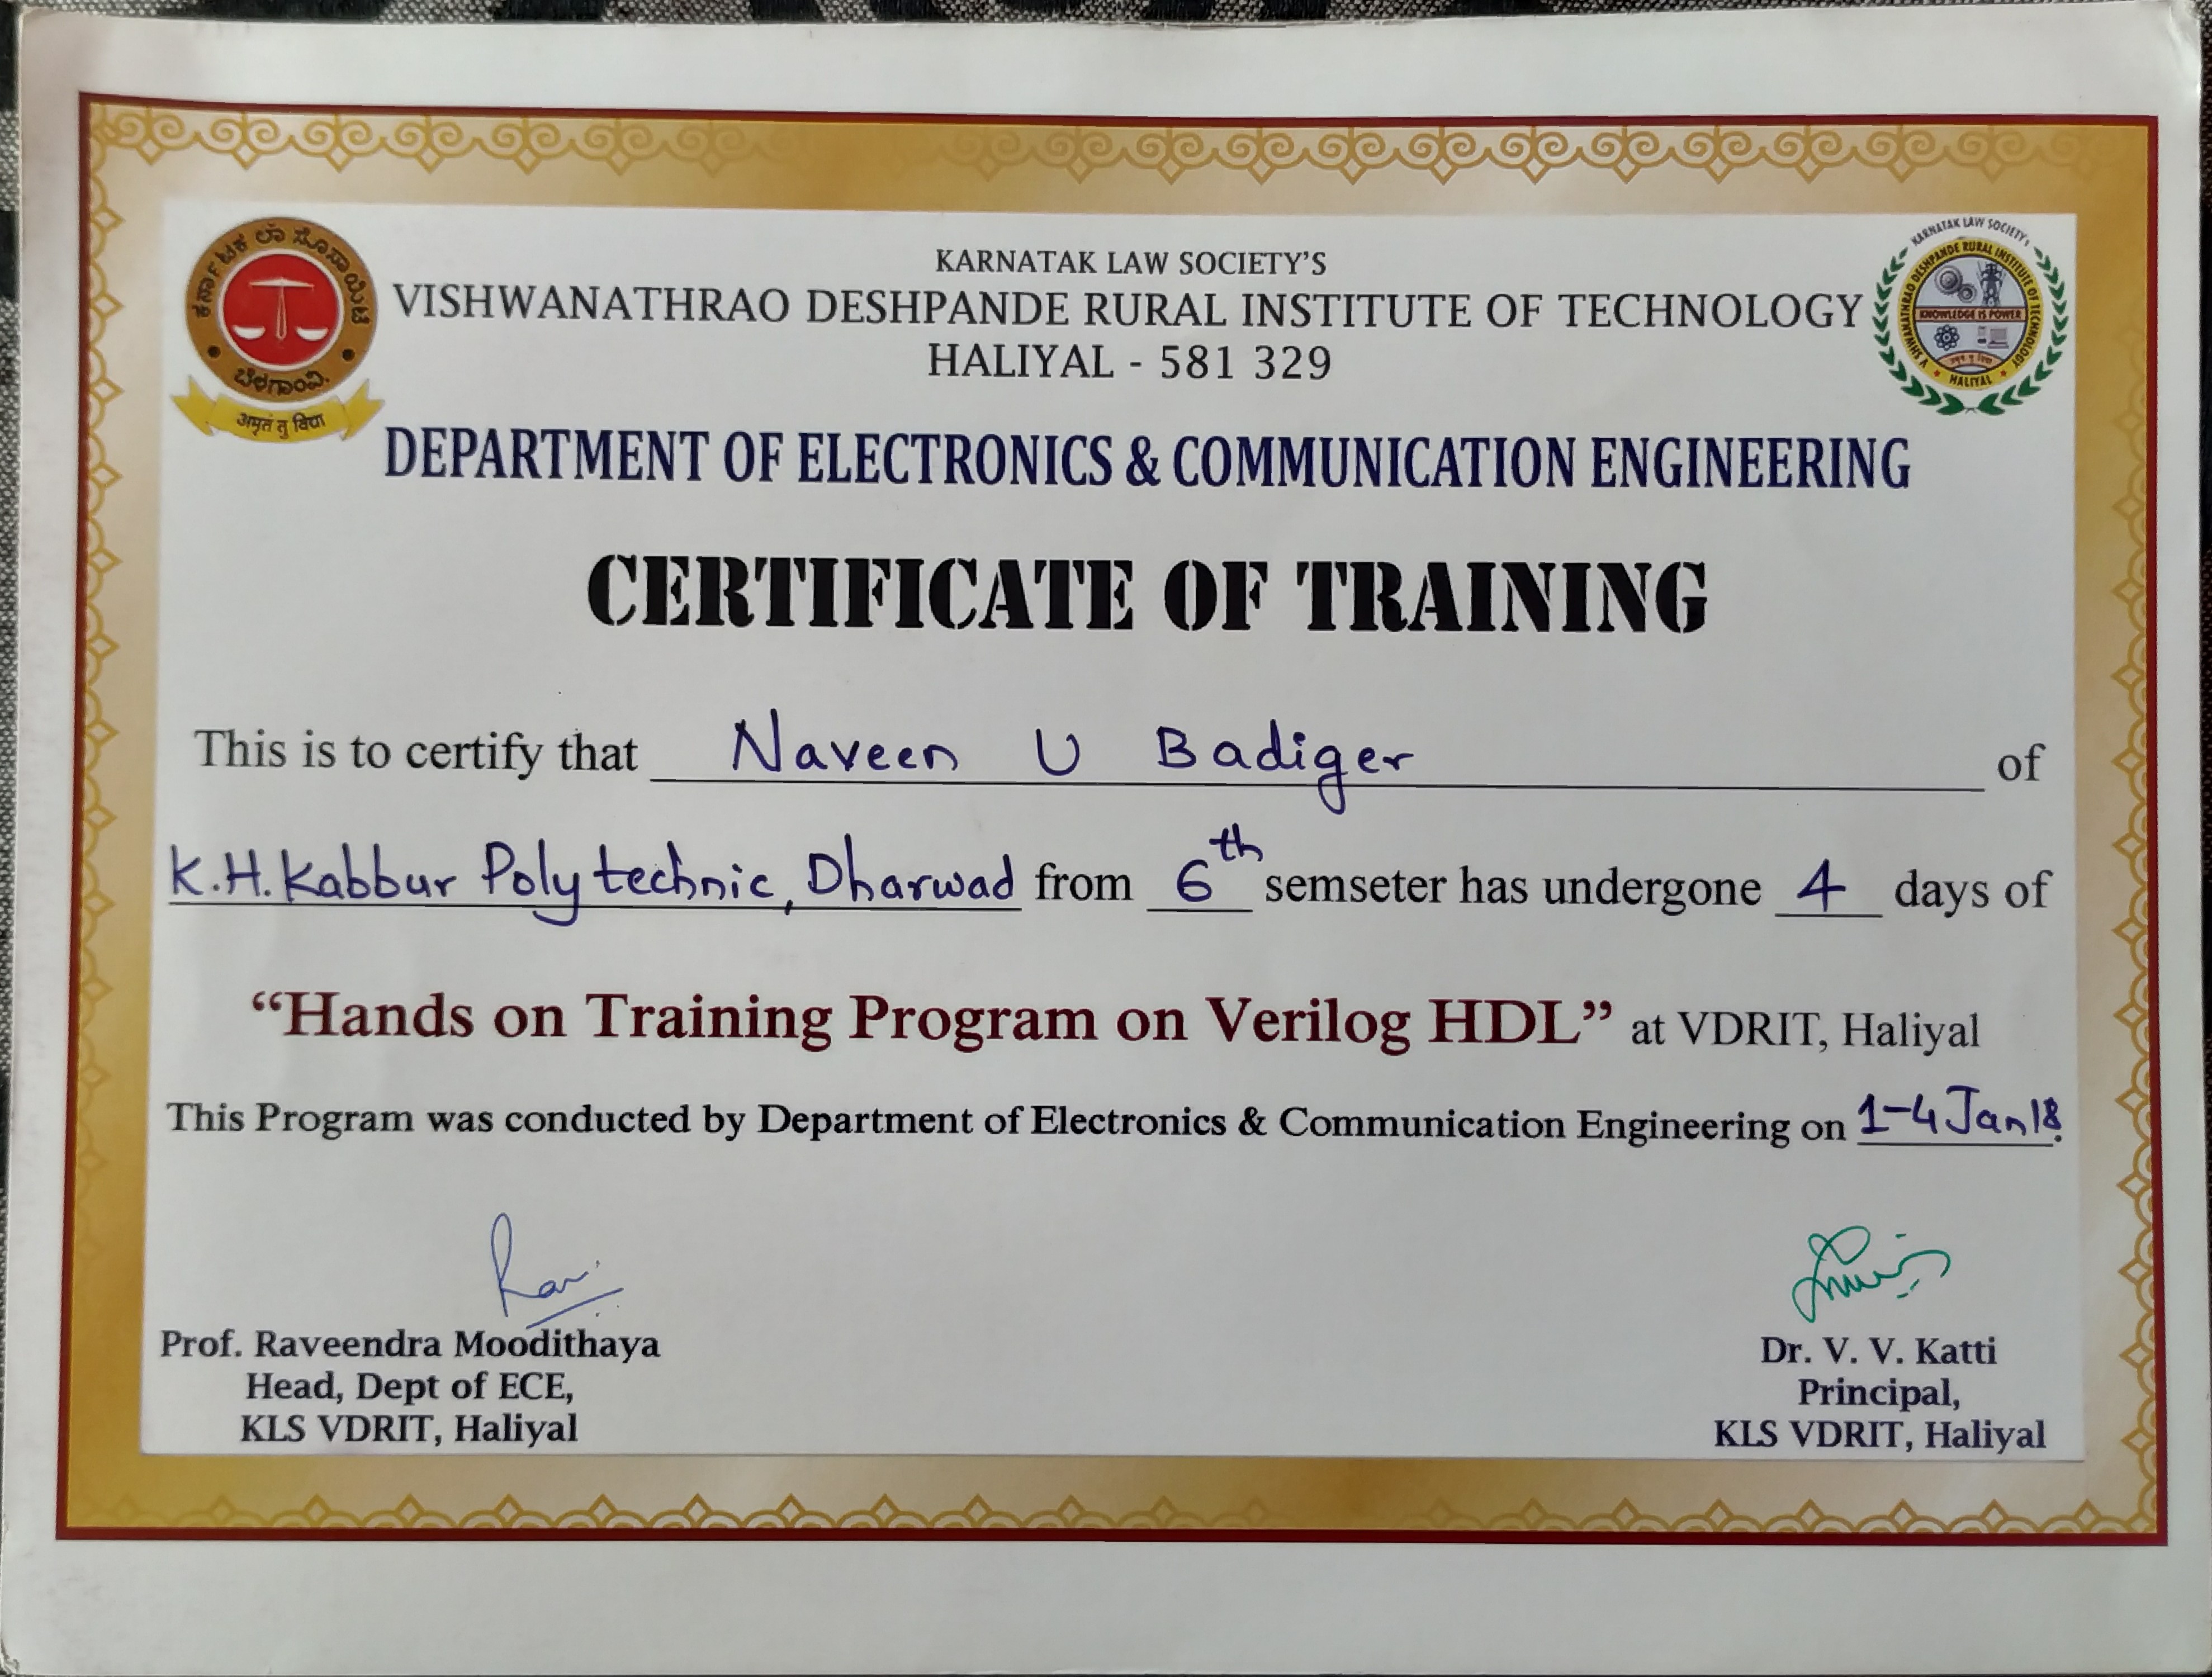 ಕರ್ನಾಟಕ ಲಾ ಸೊಸಾಯಿಟಿ
ಬೆಳಗಾಂವಿ.
अमृतं तु विद्या
KARNATAK LAW SOCIETY'S
VISHWANATHRAO DESHPANDE RURAL INSTITUTE OF TECHNOLOGY
HALIYAL - 581 329
KARNATAK LAW SOCIETY'S
VISHWANATHRAO DESHPANDE RURAL INSTITUTE OF TECHNOLOGY
KNOWLEDGE IS POWER
HALIYAL
DEPARTMENT OF ELECTRONICS & COMMUNICATION ENGINEERING
CERTIFICATE OF TRAINING
This is to certify that Naveen U Badiger of
K.H.Kabbur Polytechnic, Dharwad from 6th semseter has undergone 4 days of
“Hands on Training Program on Verilog HDL” at VDRIT, Haliyal
This Program was conducted by Department of Electronics & Communication Engineering on 1-4 Jan 18.
Prof. Raveendra Moodithaya
Head, Dept of ECE,
KLS VDRIT, Haliyal
Dr. V. V. Katti
Principal,
KLS VDRIT, Haliyal